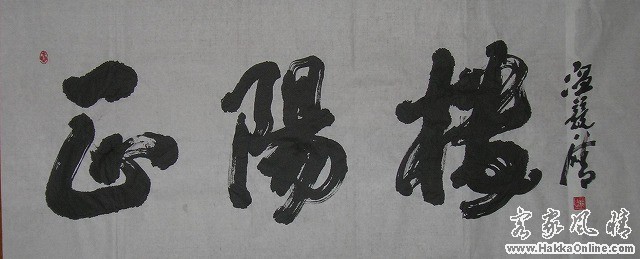 正陽樓
客家风情
www.HakkaOnline.com